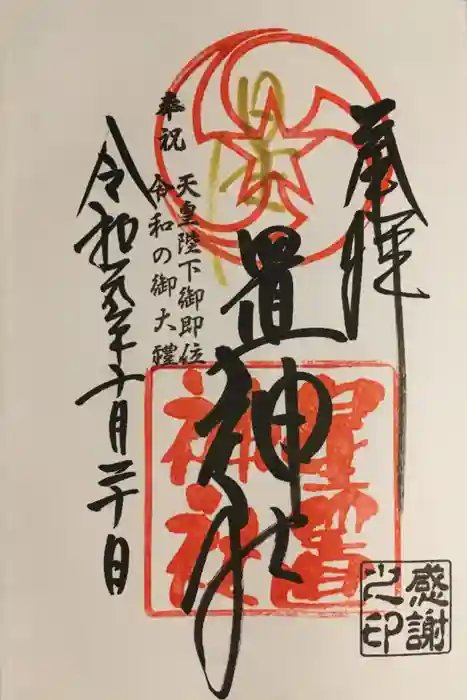 奉拝
星置神社
星置神社
奉祝
天皇陛下御即位
令和の御大禮
令和元年十月二十日
感謝
之印